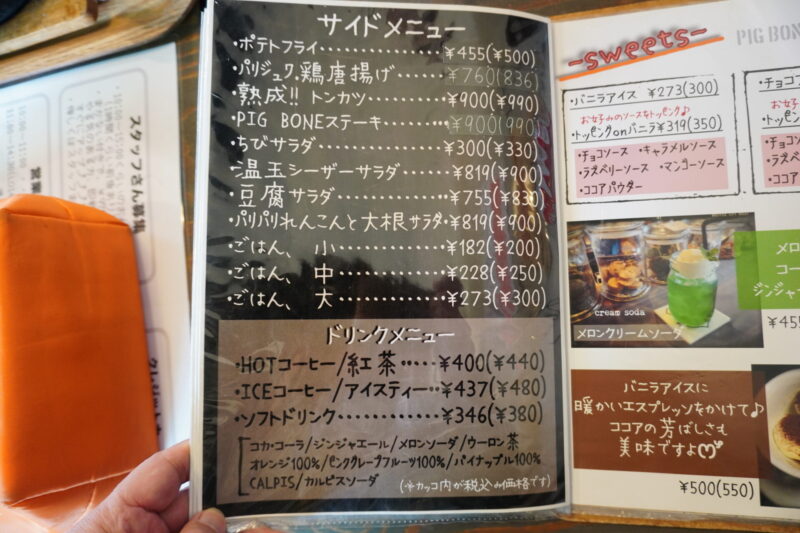 サイドメニュー
・ポテトフライ ¥455(¥500)
・パリジュワ鶏唐揚げ…… ¥760(836)
・熟成!! トンカツ…… ¥900(¥990)
・PIG BONEステーキ…… ¥900(990)
・ちびサラダ…… ¥300(¥330)
・温玉シーザーサラダ…… ¥819(¥900)
・豆腐サラダ…… ¥755(¥830)
・パリパリれんこんと大根サラダ・¥819(¥900)
・ごはん、小…… ¥182(¥200)
・ごはん、中…… ¥228(¥250)
・ごはん、大…… ¥273(¥300)
ドリンクメニュー
・HOTコーヒー/紅茶…… ¥400(¥440)
・ICEコーヒー/アイスティー・・¥437(¥480)
・ソフトドリンク…… ¥346(¥380)
コカ・コーラ/ジンジャエール/メロンソーダ/ウーロン茶
オレンジ100%/ピンクグレープフルーツ100%/パイナップル100%
CALPIS/カルピスソーダ
(※カッコ内が税込み価格です)
-sweets-
PIG BONE
・バニラアイス ¥273(300)
お好みのソースをトッピング♪
・トッピングonバニラ¥319(350)
・チョコソース ・キャラメルソース
・ラズベリーソース ・マンゴーソース
・ココアパウダー
・チョコ
・トッピン
・チョコ
・ラズベ
・ココア
cream soda
メロンクリームソーダ
メロ
コー
ジンジャー
¥455
バニラアイスに
暖かいエスプレッソをかけて♪
ココアの芳ばしさも
美味ですよ♡
¥500(550)
スタッフさん募集